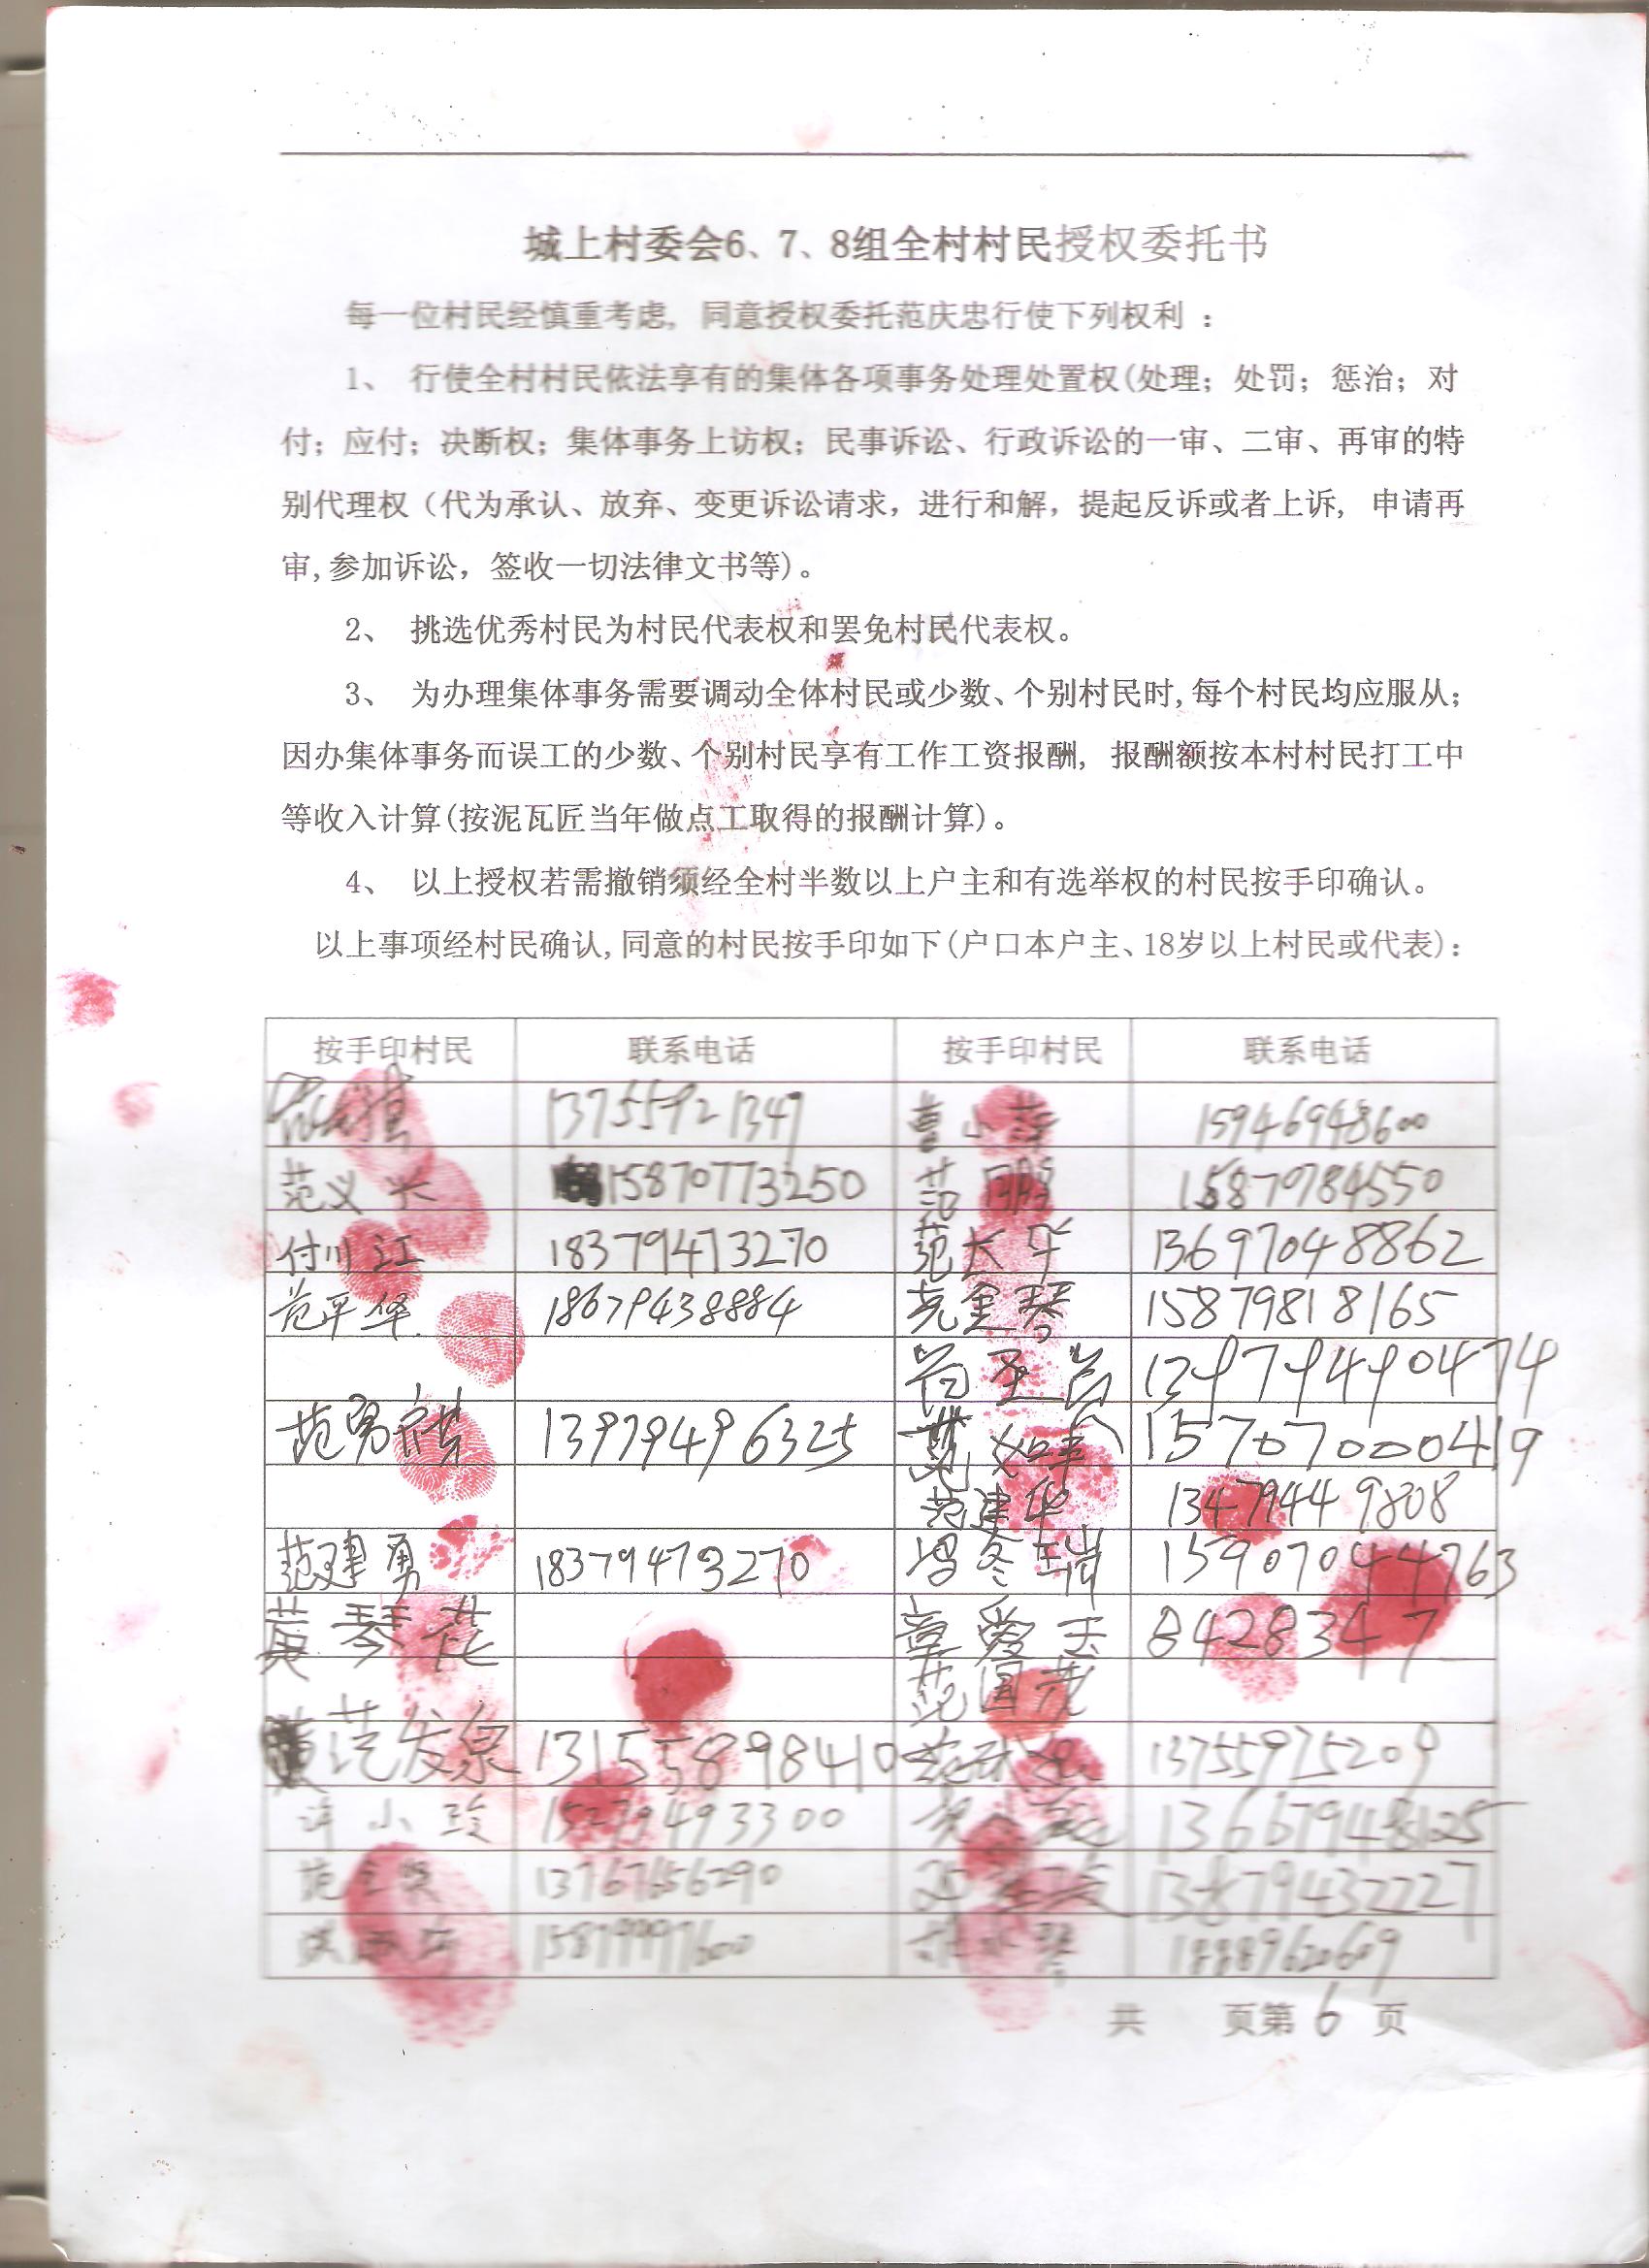 城上村委会6、7、8组全村村民授权委托书
每一位村民经慎重考虑，同意授权委托范庆忠行使下列权利：
1、 行使全村村民依法享有的集体各项事务处理处置权(处理；处罚；惩治；对
付；应付；决断权；集体事务上访权；民事诉讼、行政诉讼的一审、二审、再审的特
别代理权（代为承认、放弃、变更诉讼请求，进行和解，提起反诉或者上诉，申请再
审,参加诉讼，签收一切法律文书等)。
2、 挑选优秀村民为村民代表权和罢免村民代表权。
3、 为办理集体事务需要调动全体村民或少数、个别村民时,每个村民均应服从；
因办集体事务而误工的少数、个别村民享有工作工资报酬，报酬额按本村村民打工中
等收入计算(按泥瓦匠当年做点工取得的报酬计算)。
4、 以上授权若需撤销须经全村半数以上户主和有选举权的村民按手印确认。
以上事项经村民确认,同意的村民按手印如下(户口本户主、18岁以上村民或代表)：
按手印村民 联系电话 按手印村民 联系电话
13755921347 曹小萍 15946948600
范义兴 15870773250 范鹏 15879784550
付川江 18379473270 范长华 13697048862
范平华 18679438884 金琴 15879818165
13979490474
范勇 13979496325 15707000419
范建华 13479449808
范建勇 18379473270 冯冬瑞 15907044763
黄琴花 章爱玉 8428347
范国茂
范发泉 13155898410 13755975209
许小玲 15279493300
13767656290 13879432227
18889620609
共 页第6页